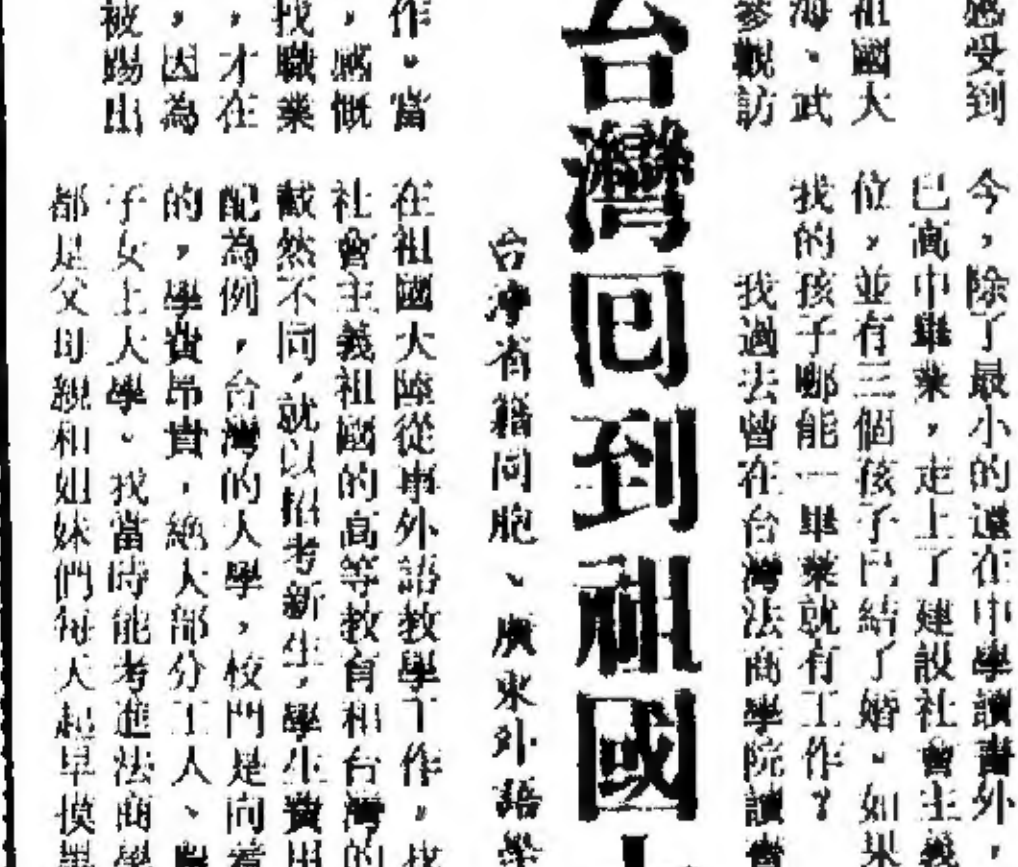 感受到
祖國大
海、武
參觀訪
今，除了最小的還在中學讀書外，
已高中畢業，走上了建設社會主義
位，並有三個孩子已結了婚。如果
我的孩子哪能一畢業就有工作？
我過去曾在台灣法商學院讀書
台灣回到祖國
台灣省籍同胞、廣東外語學
作。當
，感慨
找職業
，才在
，因為
被踢出
在祖國大陸從事外語教學工作，我
社會主義祖國的高等教育和台灣的
截然不同，就以招考新生，學生費用
配為例，台灣的大學，校門是向着
的，學費昂貴，絕大部分工人、農
子女上大學。我當時能考進法商學
都是父母親和姐妹們每天起早摸黑